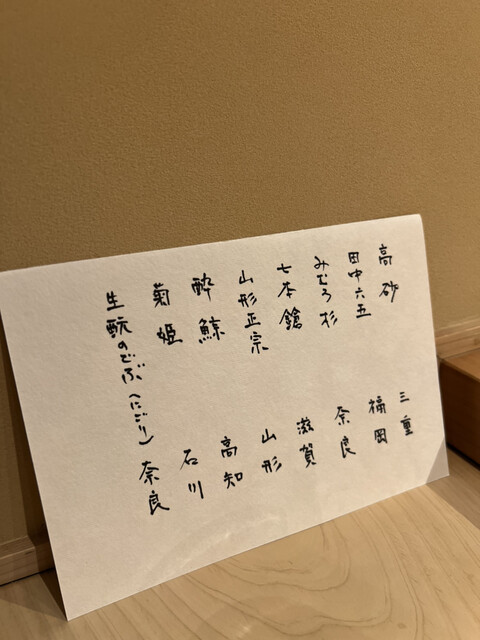 高砂 三重
田中六五 福岡
みむろ杉 奈良
七本鎗 滋賀
山形正宗 山形
酔鯨 高知
菊姫 石川
生酛のどぶ(にごり) 奈良